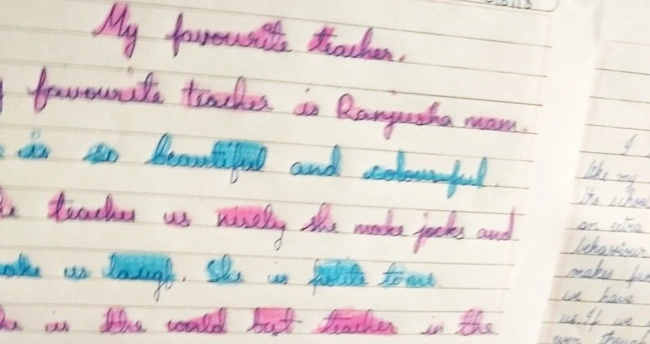 My favourite teacher.
favourite teacher is Ranjusha mam.
is so beautiful and colourful.
teaches us nicely she make jocks and
us laugh. She is polite to me.
is the world best teacher in the
I
like my
the school
an extra
behaviour
makes fun
we have
us. If we
even though